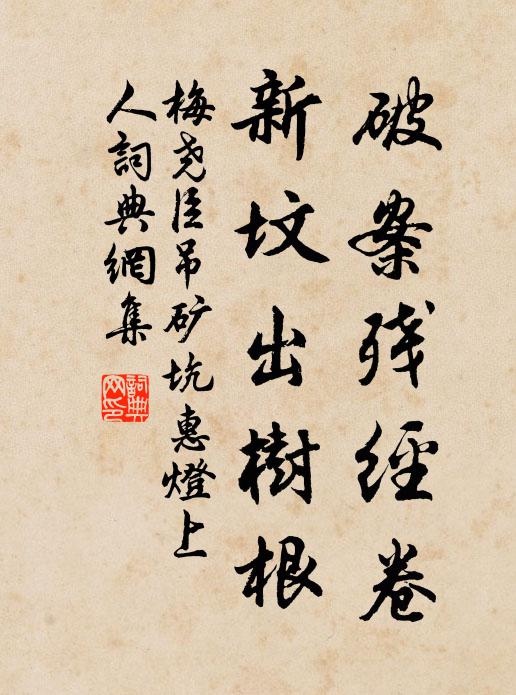 破案残經卷
新坟出樹根
梅尧臣吊矿坑惠燈上
人詞典網集
詞典网印